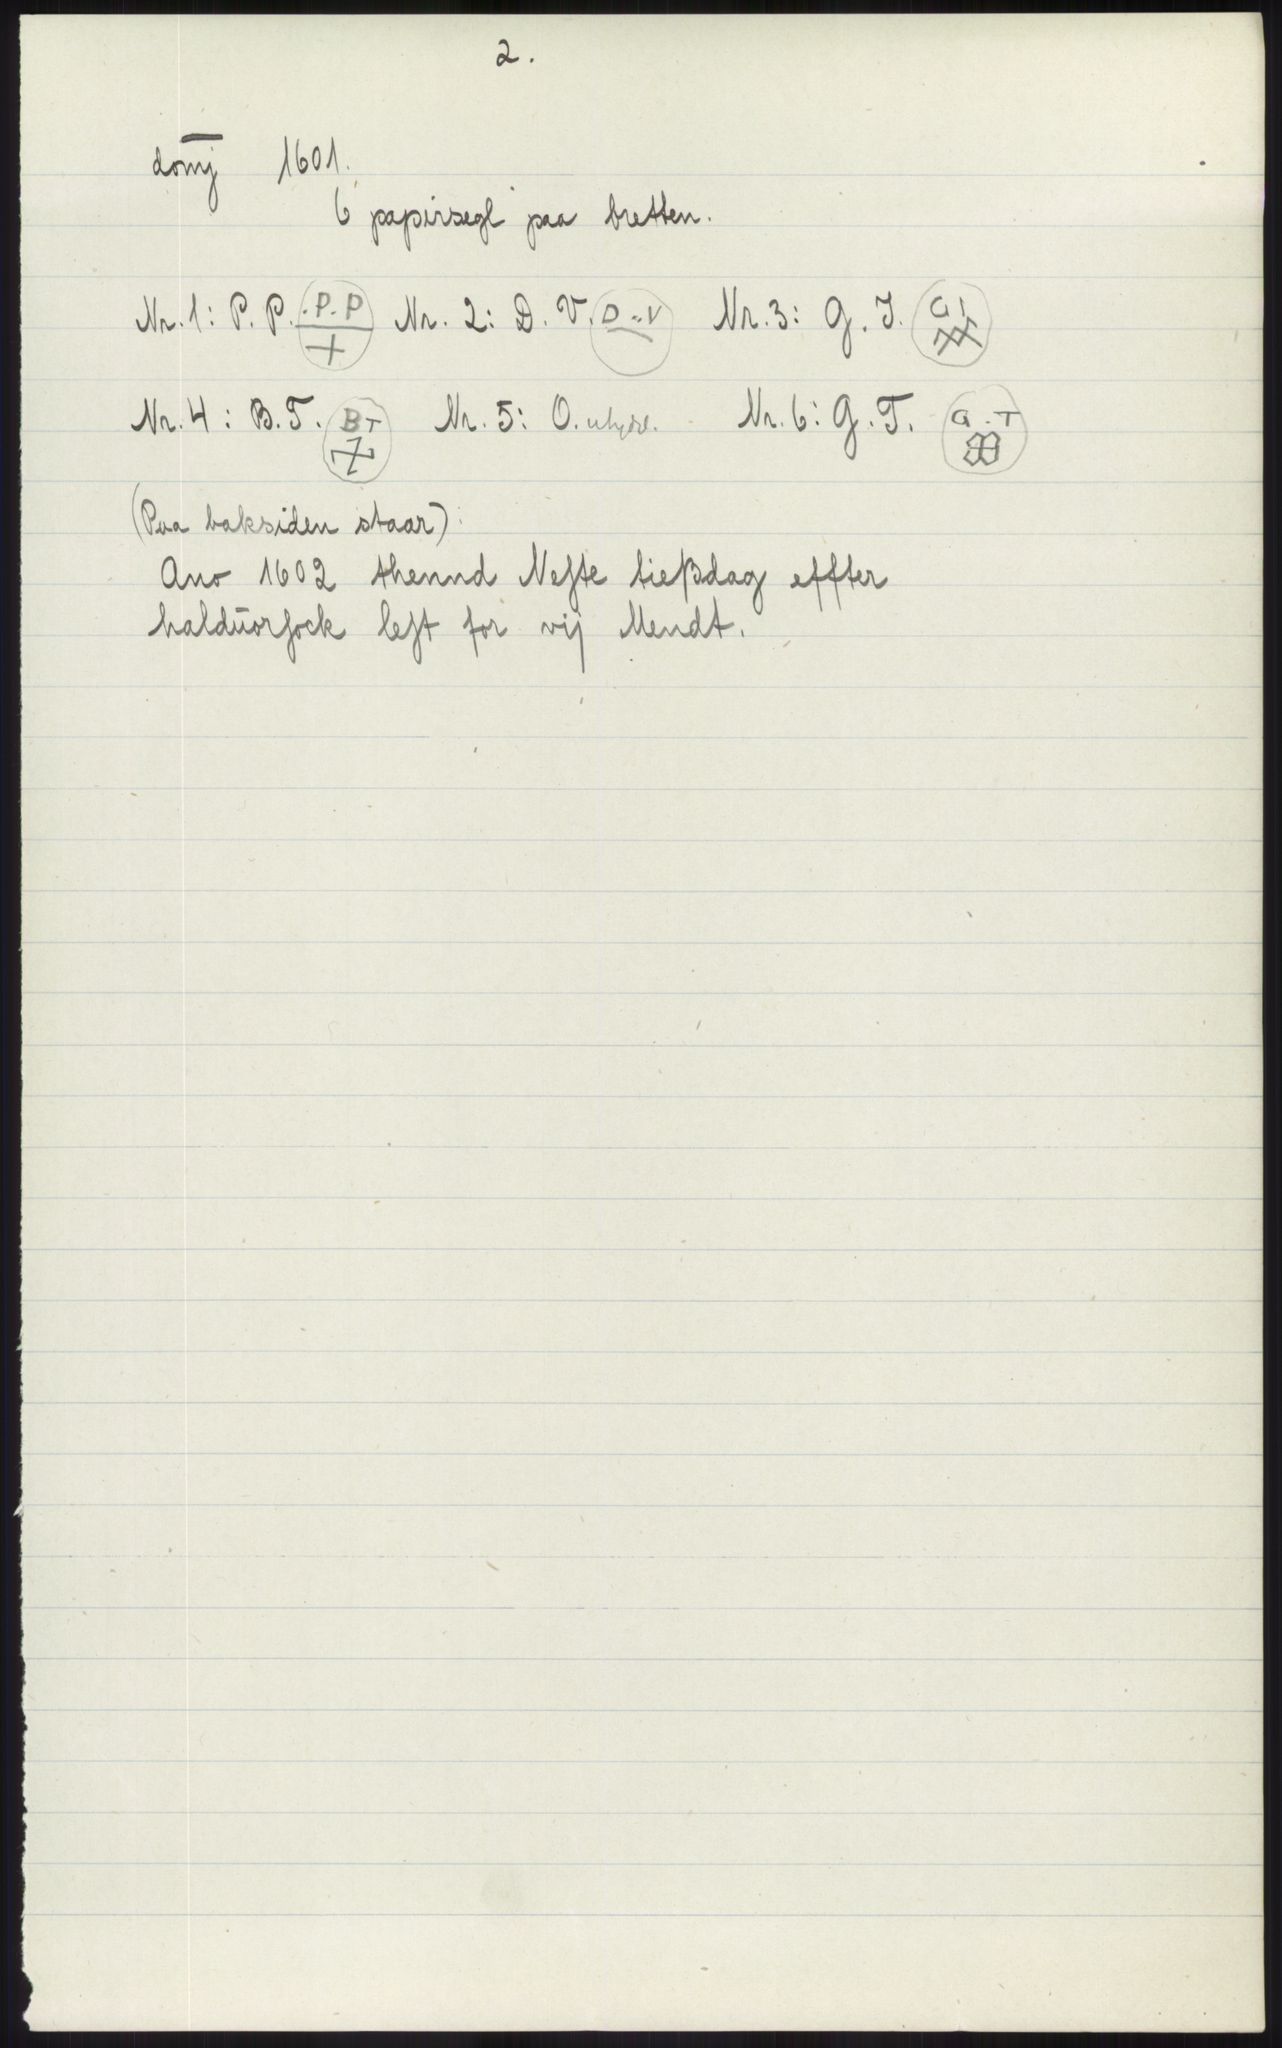 2.
dom̅j 1601.
6 papirsegl paa bretten.
Nr. 1: P. P. .P.P Nr. 2: D. V. D..V Nr. 3: G. I. G I
Nr. 4: B. T. B T Nr. 5: O. utyde. Nr. 6: G. T. G . T
(Paa baksiden staar):
Ano 1602 thennd Neste tießdag effter
halduorsock lest for vij Mendt.